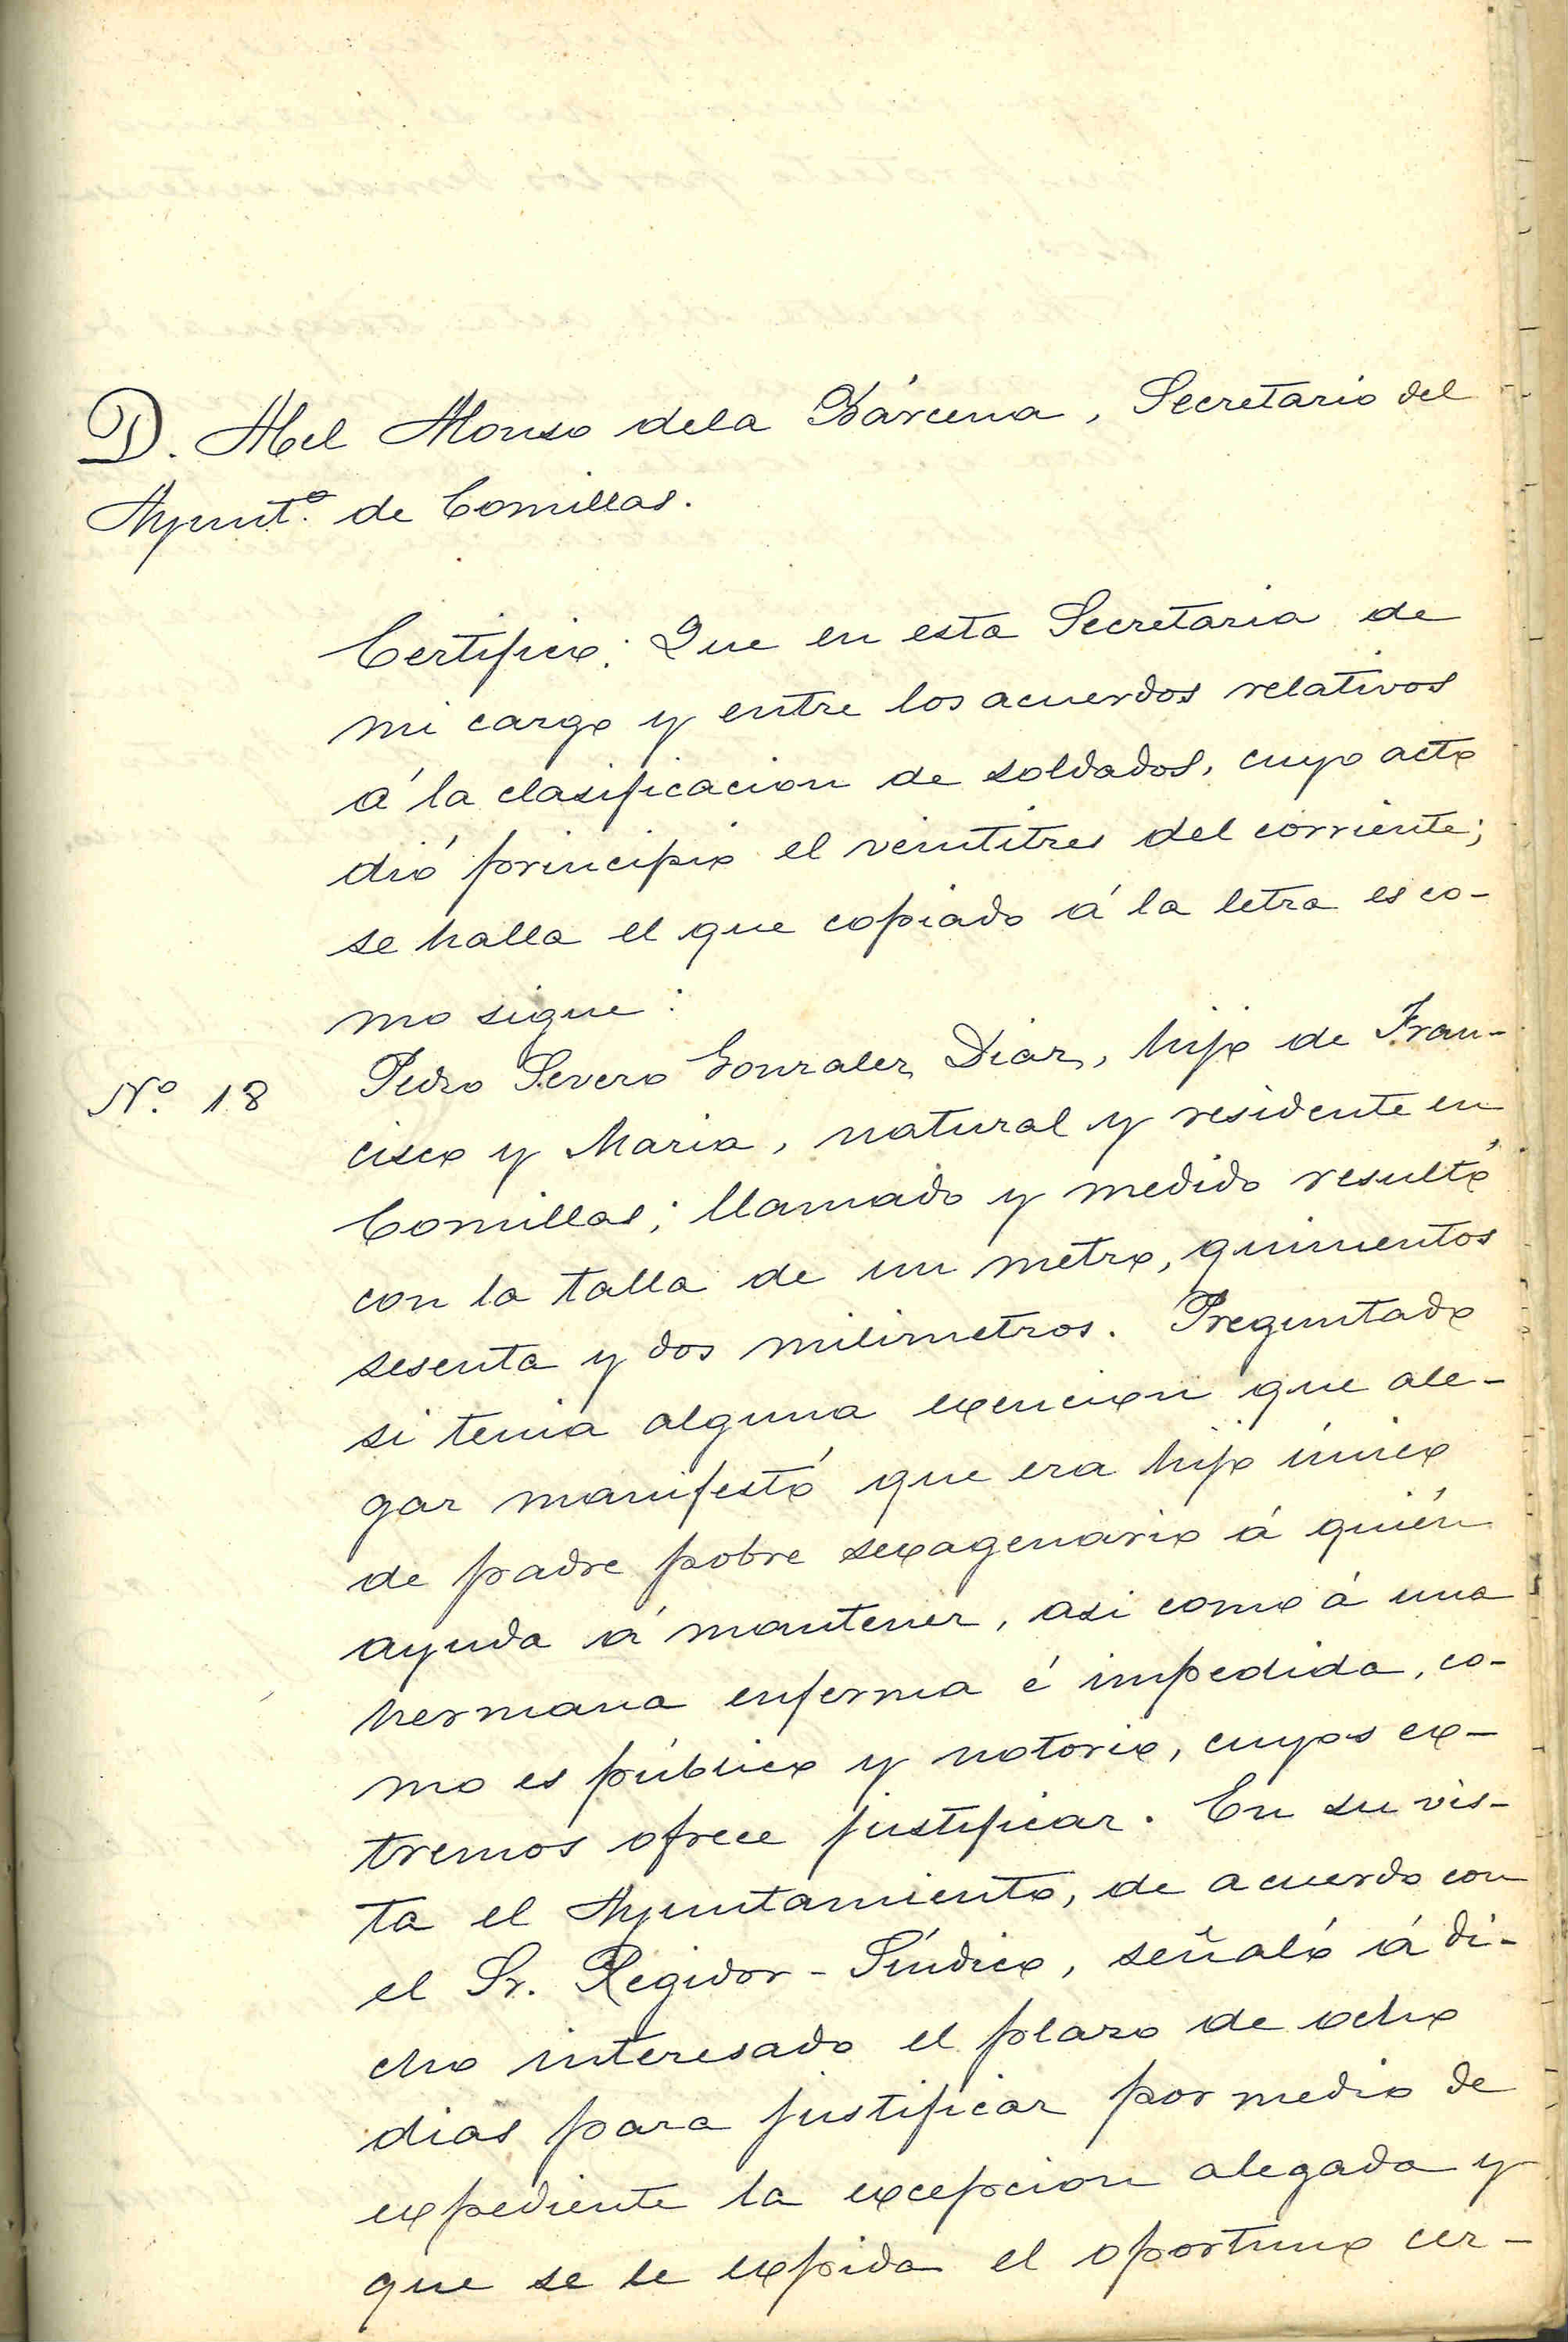 D. Abel Alonso de la Bárcena, Secretario del
Ayunt.º de Comillas.
Certifico: Que en esta Secretaria de
mi cargo y entre los acuerdos relativos
á la clasificacion de soldados, cuyo acto
dió principio el veintitres del corriente;
se halla el que copiado á la letra es co-
mo sigue:
Nº. 18 Pedro Severo Gonzalez Diaz, hijo de Fran-
cisco y Maria, natural y residente en
Comillas; llamado y medido resultó
con la talla de un metro, quinientos
sesenta y dos milimetros. Preguntado
si tenia alguna exencion que ale-
gar manifestó que era hijo único
de padre pobre sexagenario á quién
ayuda á mantener, asi como á una
hermana enferma é impedida, co-
mo es público y notorio, cuyos ex-
tremos ofrece justificar. En su vis-
ta el Ayuntamiento, de acuerdo con
el Sr. Regidor-Síndico, señaló á di-
cho interesado el plazo de ocho
dias para justificar por medio de
expediente la excepcion alegada y
que se le expida el oportuno cer-